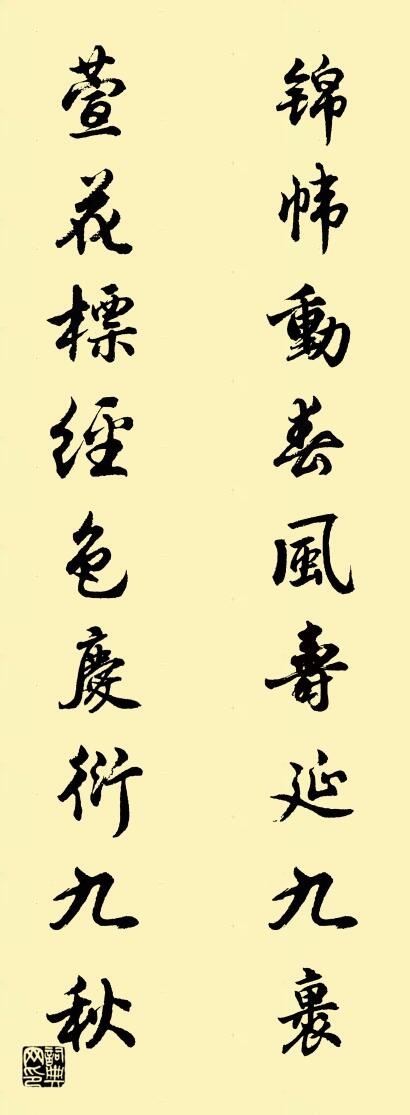 锦帏動春風壽延九裏
萱花標經色慶衍九秋
詞典网印